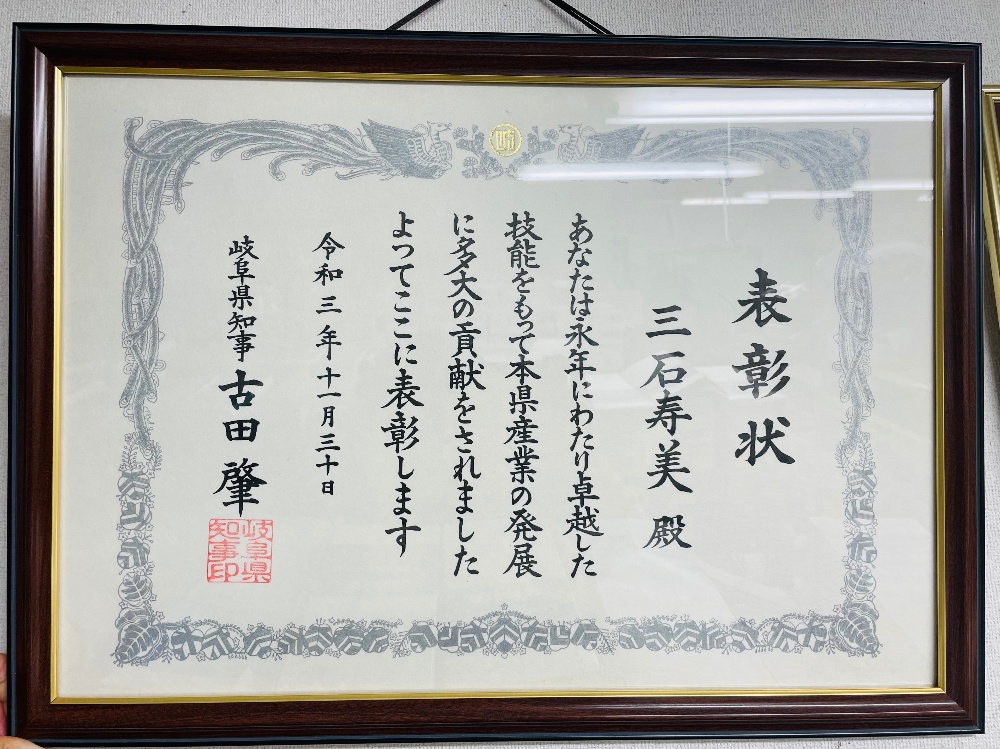 表彰状
三石寿美 殿
あなたは永年にわたり卓越した
技能をもって本県産業の発展
に多大の貢献をされました
よってここに表彰します
令和三年十一月三十日
岐阜県知事 古田 肇
岐阜県
知事印